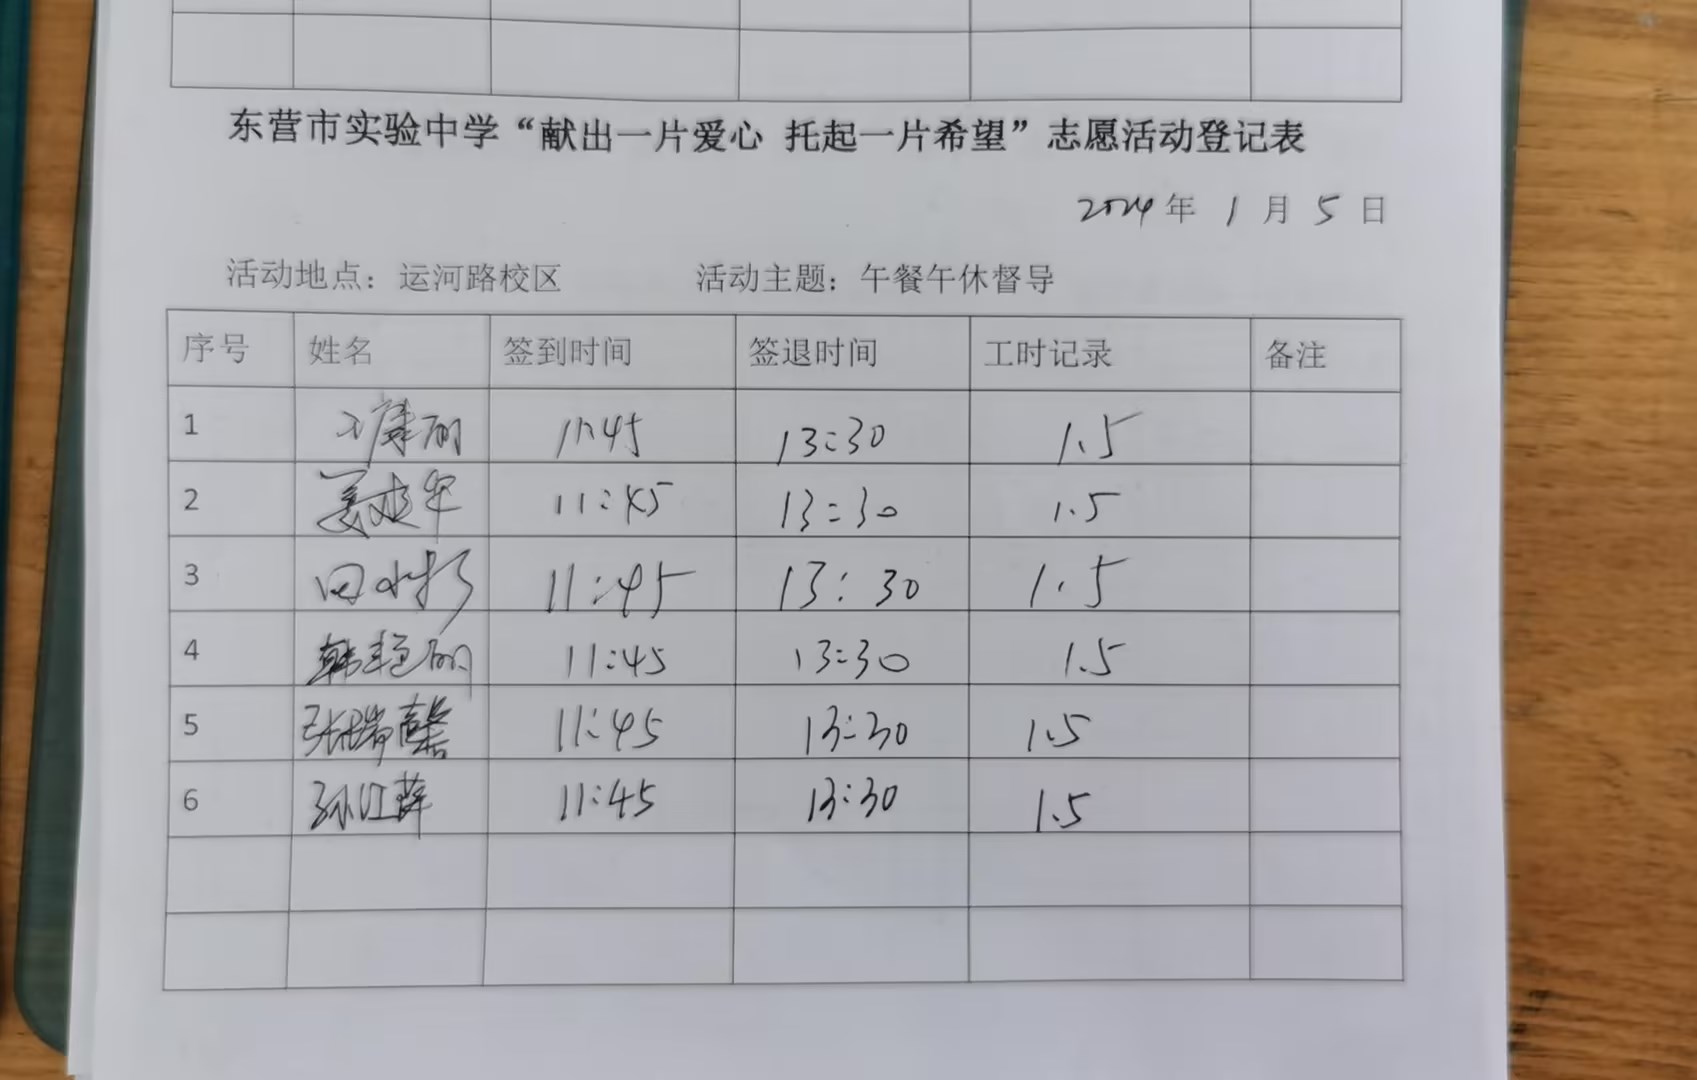 东营市实验中学“献出一片爱心 托起一片希望”志愿活动登记表
2024年 1 月 5 日
活动地点：运河路校区 活动主题：午餐午休督导
序号 姓名 签到时间 签退时间 工时记录 备注
1 11:45 13:30 1.5
2 11:45 13:30 1.5
3 11:45 13:30 1.5
4 韩艳丽 11:45 13:30 1.5
5 张瑞馨 11:45 13:30 1.5
6 孙江萍 11:45 13:30 1.5